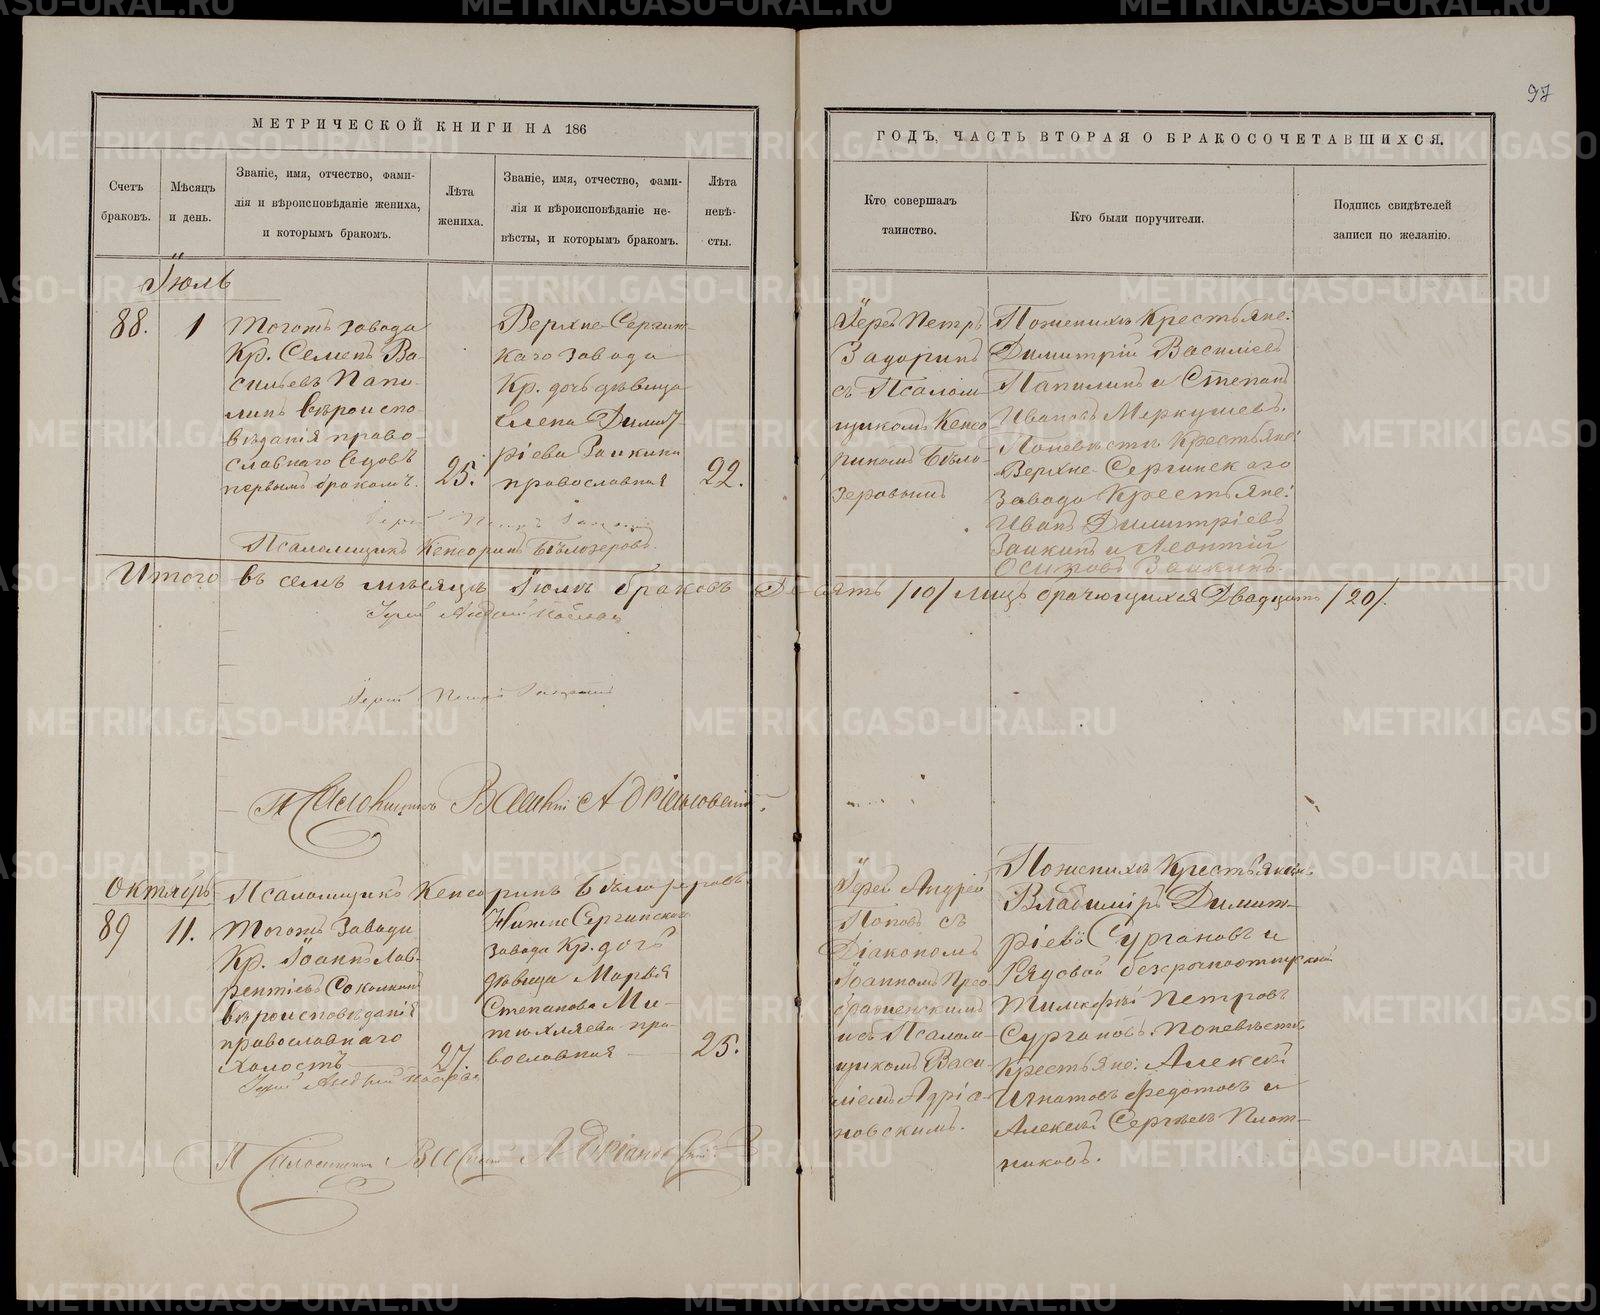 97
МЕТРИЧЕСКОЙ КНИГИ НА 186
ГОДЪ, ЧАСТЬ ВТОРАЯ О БРАКОСОЧЕТАВШИХСЯ.
Счетъ
браковъ.
Мѣсяцъ
и день.
Званіе, имя, отчество, фами-
лія и вѣроисповѣданіе жениха,
и которымъ бракомъ.
Лѣта
жениха.
Званіе, имя, отчество, фами-
лія и вѣроисповѣданіе не-
вѣсты, и которымъ бракомъ.
Лѣта
невѣ-
сты.
Кто совершалъ
таинство.
Кто были поручители.
Подпись свидѣтелей
записи по желанію.
Іюль
88.
1
Тогожъ завода
Кр. Семенъ Ва-
сильевъ Папи-
линъ вѣроиспо-
вѣданія право-
славнаго вдовъ
первымъ бракомъ.
25.
Верхне-Сергин-
каго завода
Кр. дочь дѣвица
Елена Димит
ріева Заикина
православная
22.
Іерей Петръ
Псаломщикъ Кенсоринъ Бѣлозеровъ.
Іерей Петръ
Задоринъ
съ Псалом
щикомъ Кенсо
риномъ Бѣло-
зеровымъ
Поженихѣ Крестьяне:
Димитрій Василіевъ
Папилинъ и Степанъ
Ивановъ Меркушевъ.
Поневѣстѣ Крестьяне:
Верхне-Сергинскаго
завода Крестьяне:
Иванъ Димитріевъ
Заикинъ и Леонтій
Осиповъ Заикинъ.
Итого въ семъ мѣсяцѣ Іюлѣ браковъ Десять /10/ лицъ брачущихся Двадцать /20/.
Іерей Андрей Поповъ
Іерей Петръ
Псаломщикъ Василій Адріановскій.
Октябрь
Псаломщикъ Кенсоринъ Бѣлозеровъ.
89
11.
Тогожъ Завода
Кр. Іоаннъ Лав-
рентіевъ Соколкинъ
вѣроисповѣданія
православнаго
холостъ
27.
Нижне Сергинскаго
завода Кр. дочь
дѣвица Марья
Степанова Ми-
тюхляева пра-
вославная
25.
Іерей Андрей Поповъ
Псаломщикъ Василій Адріановскій
Іерей Андрей
Поповъ съ
Діакономъ
Іоанномъ Прео
браженскимъ
и съ Псалом-
щикомъ Васи-
ліемъ Адріа-
новскимъ.
Поженихѣ Крестьянинъ
Владиміръ Димит-
ріевъ Сургановъ и
Рядовой безсрочноотпускной
Тимофей Петровъ
Сургановъ. Поневѣстѣ
Крестьяне: Алексѣй
Игнатовъ Федотовъ и
Алексѣй Сергѣевъ Плот-
никовъ.